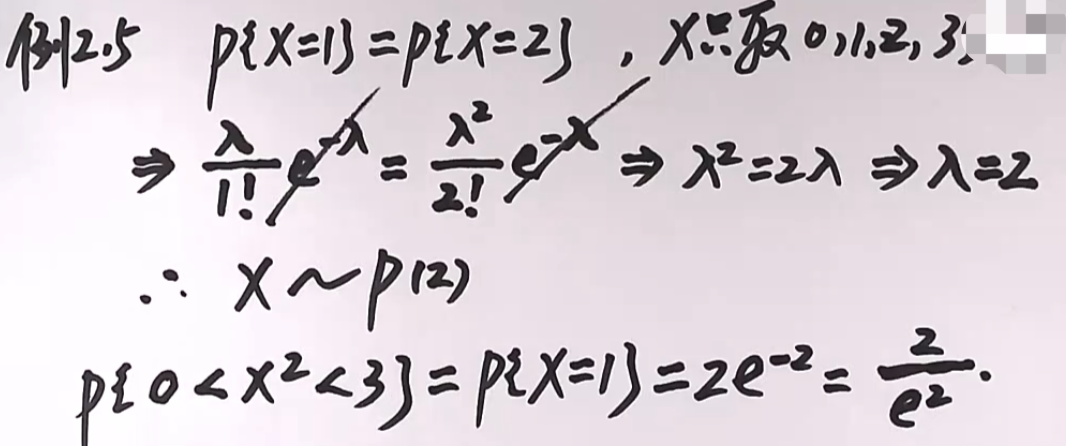 例2.5 P{X=1}=P{X=2}, X只取0,1,2,3
⇒ λ/1! e^-λ = λ²/2! e^-λ ⇒ λ²=2λ ⇒ λ=2
∴ X~P(2)
P{0<X²<3}=P{X=1}=2e^-2=2/e².